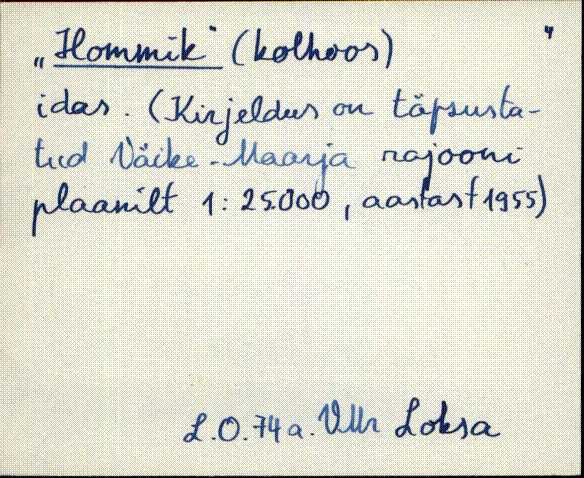 „Hommik" (kolhoos) 4
idas. (Kirjeldus on täpsusta-
tud Väike-Maarja rajooni
plaanilt 1:25.000, aastast 1955)
L.O. 74 a. VMr Loksa